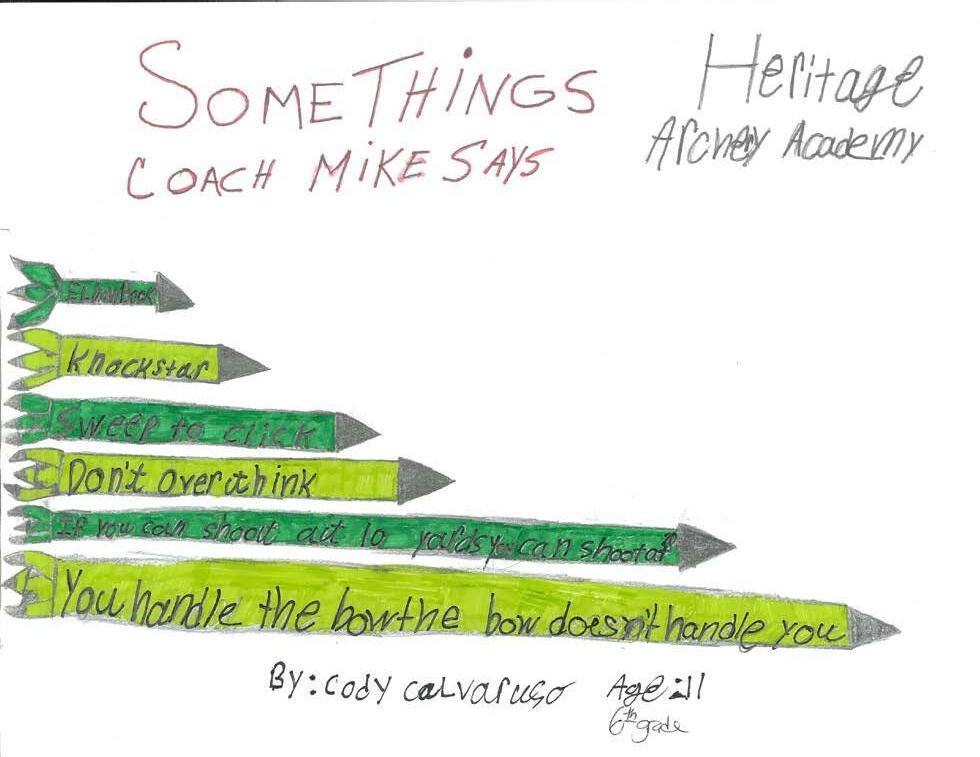 SOMETHiNGS
COACH MiKE SAYS
Heritage
Archery Academy
Knockstar
Sweep to click
Don't over think
If you can shoot at 10 yards you can shoot at
You handle the bow the bow doesn't handle you
By: Cody Calvaruso Age: 11
6th grade